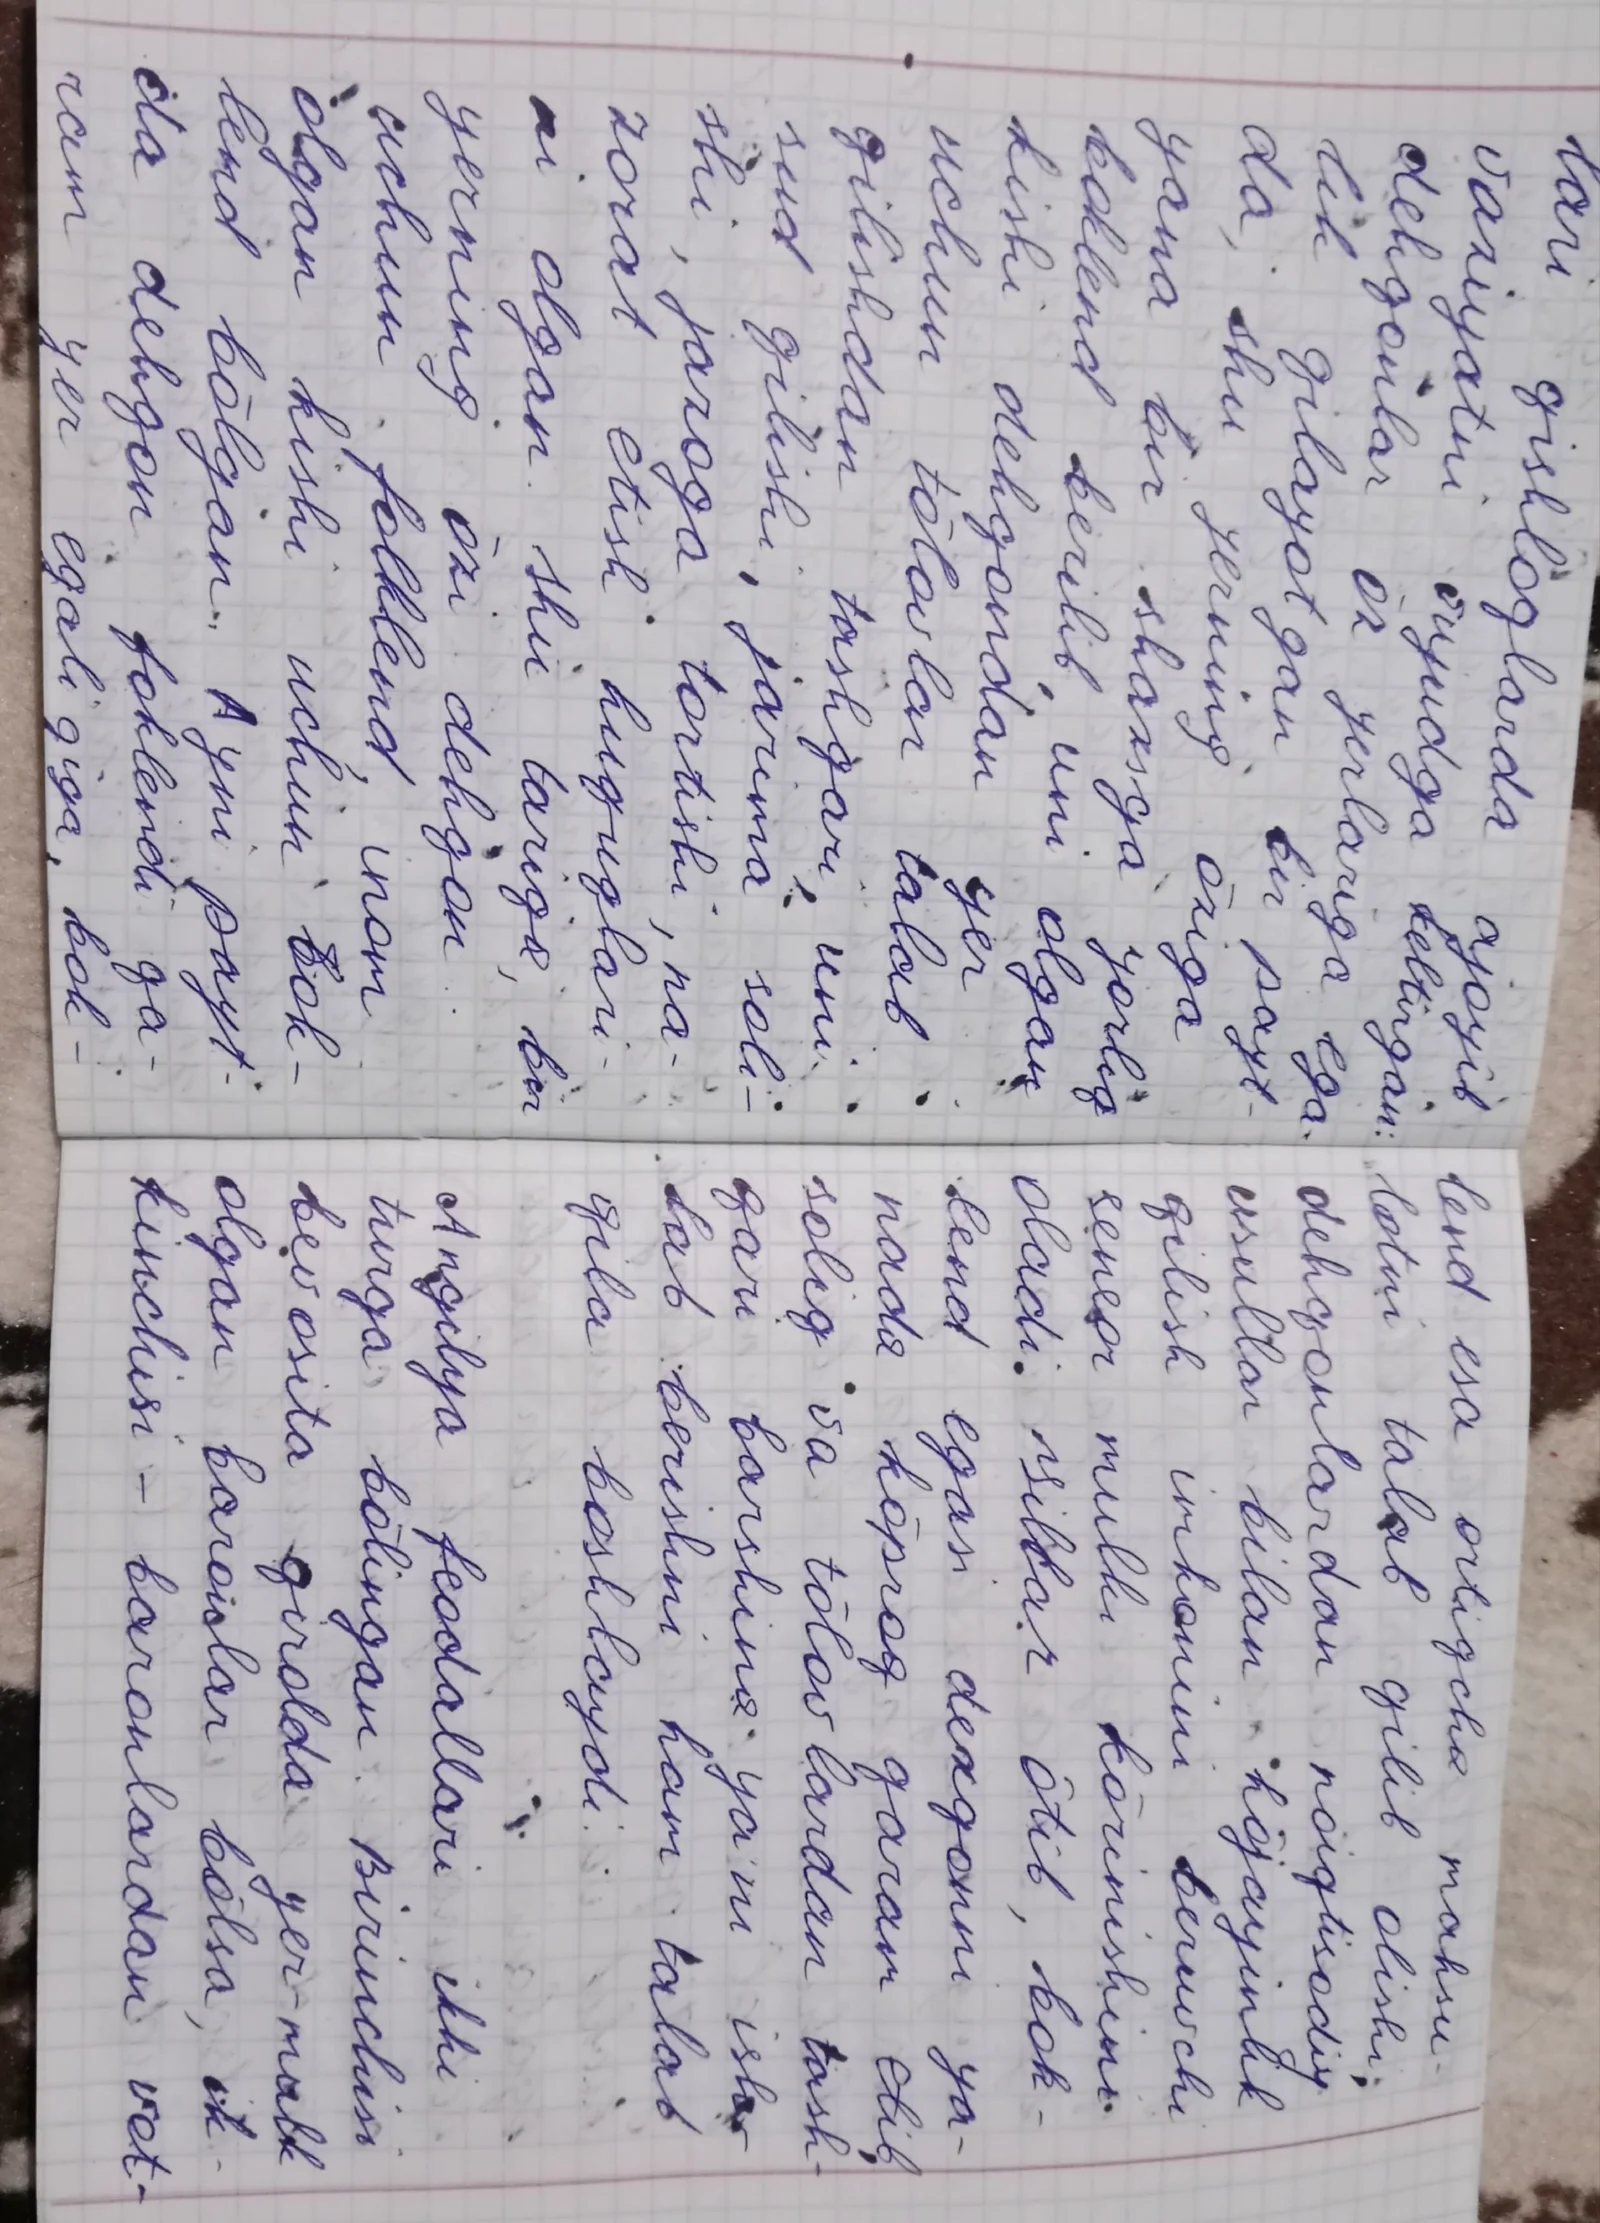 lari qishloqlarda ajoyib
vaziyatni vujudga keltirgan:
dehqonlar ōz yerlariga ega-
lik qilayotgan bir payt-
da, shu yerning ōziga
yana bir shaxsga yorliq
boklend berilib, uni olgan
kishi dehqondan yer
uchun tōlovlar talab
qilishdan tashqari, uni
sud qilishi, jarima soli-
shi, jazoga tortishi, na-
zorat etish huquqlari-
ni olgan. shu tariqa, bir
yerning ōzi dehqon
uchun folklend, inom
olgan kishi uchun bok-
lend bōlgan. Ayni payt-
da dehqon foklendi qa-
ram yer egaligiga, bok-
lend esa ortiqcha mahsu-
lotni talab qilib olishi,
dehqonlardan noiqtisodiy
usullar bilan hōjayinlik
qilish imkonini beruvchi
senor mulki kōrinishini
oladi. Asrlar ōtib, bok-
lend egasi dexqonni ya-
nada kōproq qaram etib
soliq va tōlovlardan tash-
qari barshina ya'ni ish-
lab berishni ham talab
qila boshlaydi.
Angilya feodallari ikki
turga bōlingan. Birinchisi
bevosita qirolda yer-mulk
olgan baronlar bōlsa, ik-
kinchisi - baronlardan vat-